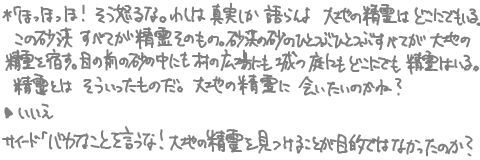 *「ほっほっほ! そう怒るな。わしは真実しか語らんよ 大地の精霊はどこにでもいる。
この砂漠 すべてが精霊そのもの。砂漠の砂のひとつぶひとつぶすべてが 大地の
精霊を宿す。目の前の砂の中にも 村の広場にも 城の庭にもどこにでも 精霊はいる。
精霊とは そういったものだ。 大地の精霊に 会いたいのかね?
▶いいえ
サイード「バカなことを言うな! 大地の精霊を見つけることが目的ではなかったのか?